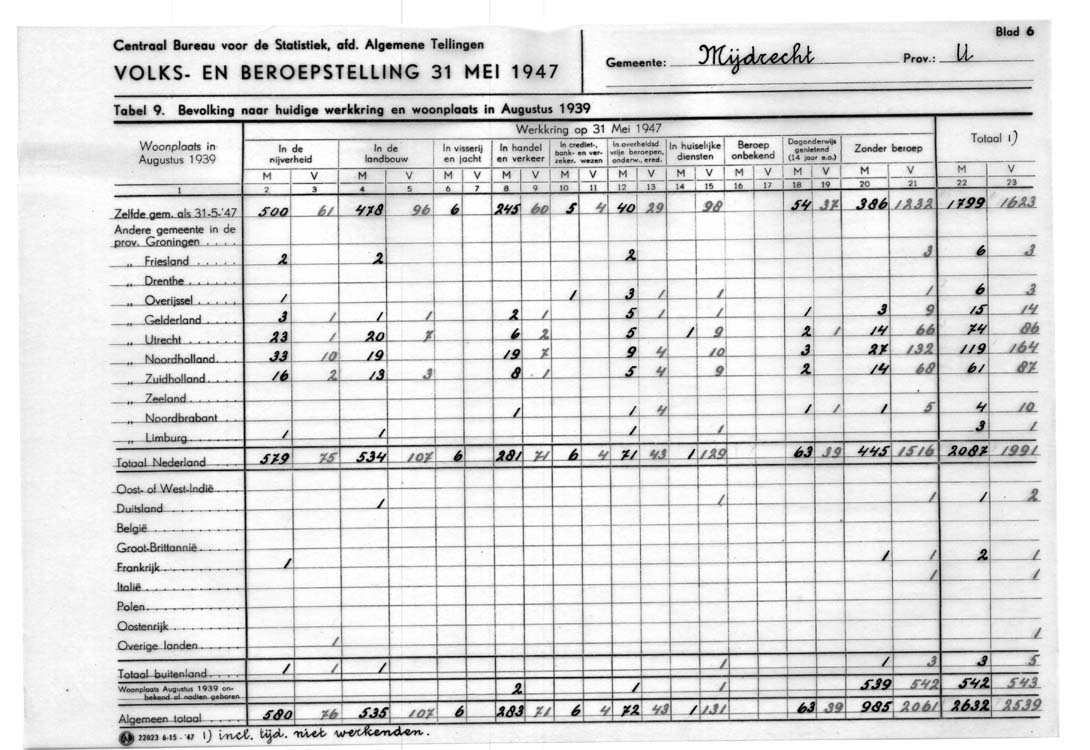 Blad 6
Centraal Bureau voor de Statistiek, afd. Algemene Tellingen
VOLKS- EN BEROEPSTELLING 31 MEI 1947
Gemeente: Mijdrecht Prov.: U
Tabel 9. Bevolking naar huidige werkkring en woonplaats in Augustus 1939
Woonplaats in Augustus 1939
Werkkring op 31 Mei 1947
Totaal 1)
In de nijverheid
In de landbouw
In visserij en jacht
In handel en verkeer
In crediet-, bank- en verzeker. wezen
In overheidsd. vrije beroepen, onderw., ered.
In huiselijke diensten
Beroep onbekend
Dagonderwijs genietend (14 jaar e.o.)
Zonder beroep
M V M V M V M V M V M V M V M V M V M V M V
1 2 3 4 5 6 7 8 9 10 11 12 13 14 15 16 17 18 19 20 21 22 23
Zelfde gem. als 31-5-'47 500 61 478 96 6 245 60 5 4 40 29 98 54 37 386 1232 1799 1623
Andere gemeente in de
prov. Groningen
„ Friesland 2 2 2 3 6 3
„ Drenthe
„ Overijssel 1 1 3 1 1 1 6 3
„ Gelderland 3 1 1 1 2 1 5 1 1 1 3 9 15 14
„ Utrecht 23 1 20 7 6 2 5 1 9 2 1 14 66 74 86
„ Noordholland 33 10 19 19 7 9 4 10 3 27 132 119 164
„ Zuidholland 16 2 13 3 8 1 5 4 9 2 14 68 61 87
„ Zeeland
„ Noordbrabant 1 1 4 1 1 1 5 4 10
„ Limburg 1 1 1 1 3 1
Totaal Nederland 579 75 534 107 6 281 71 6 4 71 43 1 129 63 39 445 1516 2087 1991
Oost- of West-Indië
Duitsland 1 1 1 1 2
België
Groot-Brittannië
Frankrijk 1 1 1 2 1
Italië 1 1
Polen
Oostenrijk
Overige landen 1 1
Totaal buitenland 1 1 1 1 1 3 3 5
Woonplaats Augustus 1939 onbekend of nadien geboren 2 1 1 539 542 542 543
Algemeen totaal 580 76 535 107 6 283 71 6 4 72 43 1 131 63 39 985 2061 2632 2539
22023 6-15 - '47 1) incl. tijd. niet werkenden.